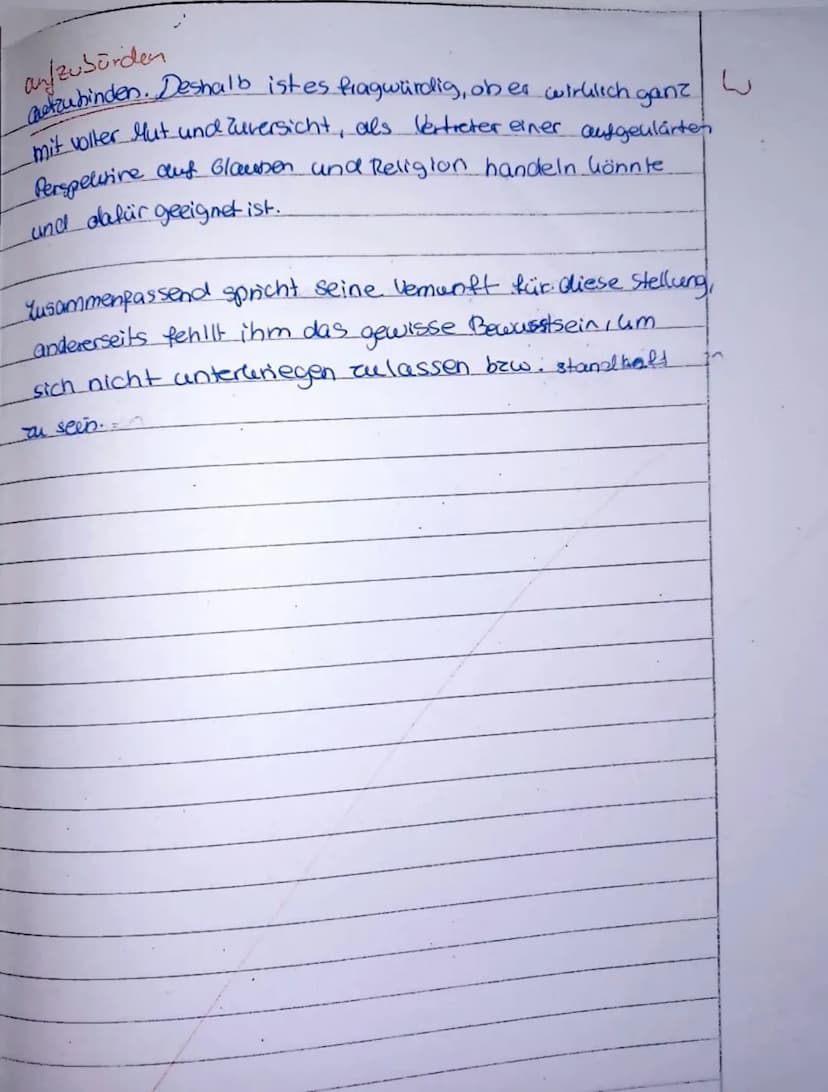 aufzubürden
aufzubinden. Deshalb ist es fragwürdig, ob er wirklich ganz
mit voller Mut und Zuversicht, als Vertreter einer aufgeklärten
Perspektive auf Glauben und Religion handeln könnte
und dafür geeignet ist.
Zusammenfassend spricht seine Vernunft für diese Stellung,
andererseits fehllt ihm das gewisse Bewusstsein, um
sich nicht unterkriegen zu lassen bzw. standhaft
zu sein.